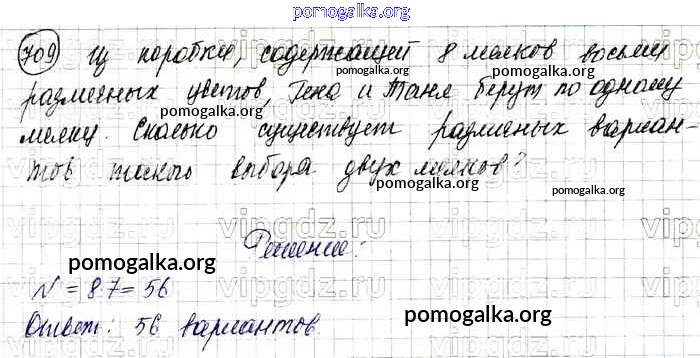 pomogalka.org
709 Из коробки, содержащей 8 мелков восьми
pomogalka.org pomogalka.org
различных цветов, Гена и Таня берут по одному
pomogalka.org pomogalka.org
мелку. Сколько существует различных вариан-
pomogalka.org
тов такого выбора двух мелков?
pomogalka.org pomogalka.org
vipgdz.ru vipgdz.ru vipgdz.ru
Решение:
pomogalka.org
N = 8·7 = 56
Ответ: 56 вариантов.
pomogalka.org